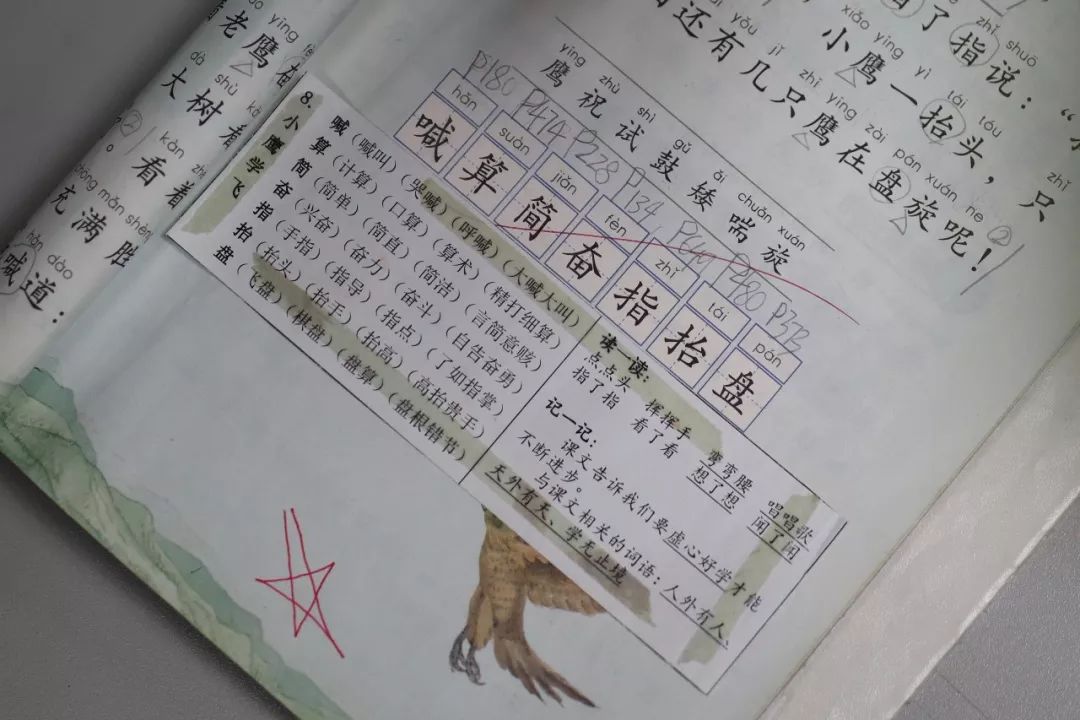 老鹰在
dà shù
大树看
kàn
。看着
充满胜
hǎn dào
喊道：
zhǐ shuō
了指说：“
xiǎo yīng yì tái tóu
小鹰一抬头，只
yǒu jǐ zhī yīng zài pán xuán ne
还有几只鹰在盘旋呢！
yīng zhù shì gǔ ǎi chuǎn xuán
鹰祝试鼓矮喘旋
P180 P474 P228 P134 P480 P373
hǎn suàn jiǎn fèn zhǐ tái pán
喊算简奋指抬盘
8.小鹰学飞
喊（喊叫）（哭喊）（呼喊）（大喊大叫）
算（计算）（口算）（算术）（精打细算）
简（简单）（简直）（简洁）（言简意赅）
奋（兴奋）（奋力）（奋斗）（自告奋勇）
指（手指）（指导）（指点）（了如指掌）
抬（抬头）（抬手）（抬高）（高抬贵手）
盘（飞盘）（棋盘）（盘算）（盘根错节）
读一读：
点点头 挥挥手 弯弯腰 唱唱歌
指了指 看了看 想了想 闻了闻
记一记：
课文告诉我们要虚心好学才能
不断进步。
与课文相关的词语：人外有人、
天外有天、学无止境